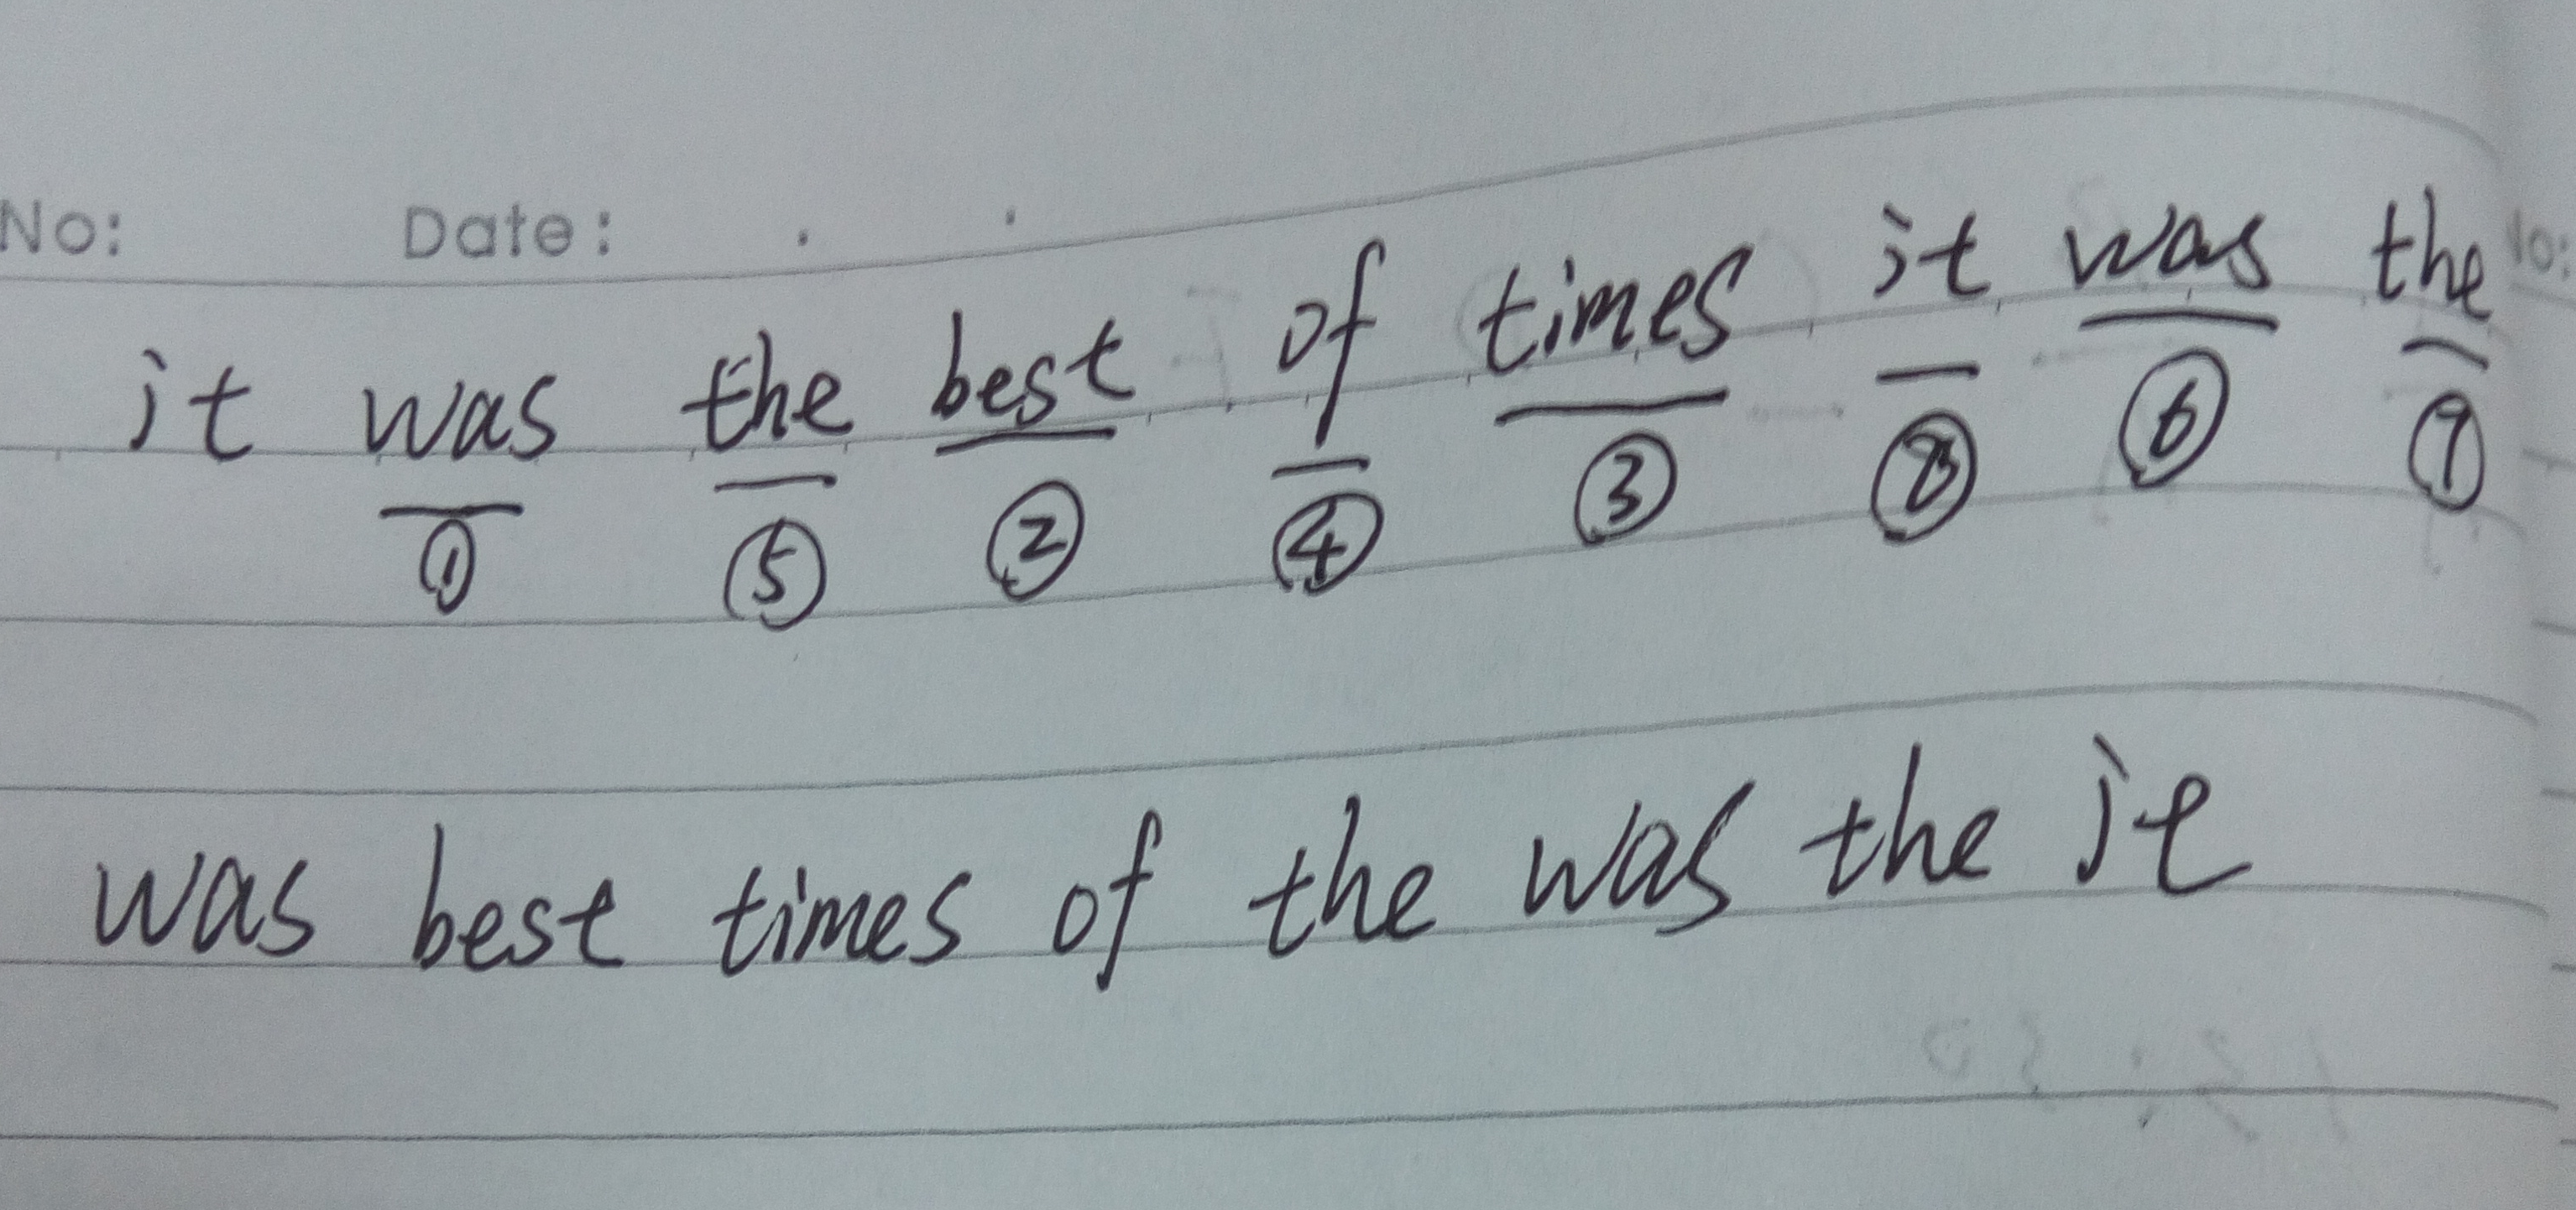 No: Date: . .
it was the best of times it was the
① ⑤ ② ④ ③ ⑧ ⑥ ⑦
was best times of the was the it